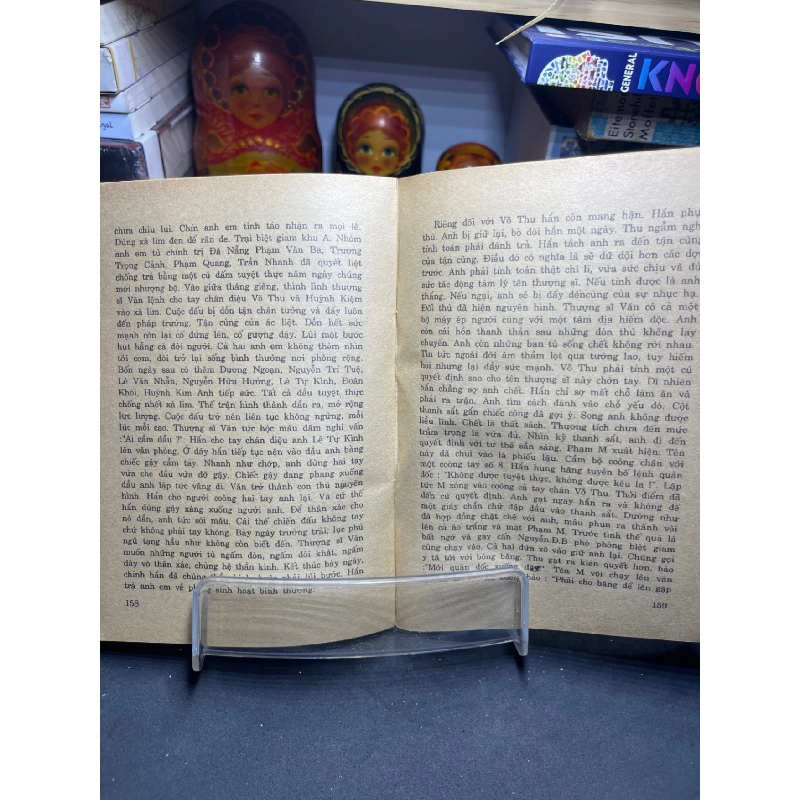 GENERAL
KN
chưa chịu lui. Chín anh em tỉnh táo nhận ra mọi lẽ.
Dùng xà lim đen để răn đe. Trại biệt giam khu A. Nhóm
anh em tù chính trị Đà Nẵng Phạm Văn Ba, Trương
Trọng Cảnh, Phạm Quang, Trần Nhanh đã quyết liệt
chống trả bằng một cú dấm tuyệt thực năm ngày chúng
mới nhượng bộ. Vào giữa tháng giêng, thình lình thượng
sĩ Văn lệnh cho tay chân điệu Võ Thu và Huỳnh Kiệm
vào xà lim. Cuộc đấu bị dồn tận chân tường và đẩy luôn
đến pháp trường. Tận cùng của ác liệt. Dồn hết sức
mạnh còn lại cố đứng lên, cố gượng dậy. Lùi một bước
hụt hẫng cả đời người. Cả hai anh em không thèm nhìn
tới cơm, đòi trở lại sống bình thường nơi phòng rộng.
Bốn ngày sau có thêm Dương Ngoạn, Nguyễn Trí Tuệ,
Lê Văn Nhẫn, Nguyễn Hữu Hường, Lê Tự Kình, Đoàn
Khôi, Huỳnh Kim Anh tiếp sức. Tất cả đều tuyệt thực
chống nhốt xà lim. Thế trận hình thành dần ra, mở rộng
lực lượng. Cuộc đấu trở nên liên tục không ngừng, mỗi
lúc mỗi cao. Thượng sĩ Văn tức hộc máu dâm nghi vấn
:"Ai cầm đầu ?". Hắn cho tay chân điệu anh Lê Tự Kình
lên văn phòng. Ở đây hắn tiếp tục nện vào đầu anh bằng
chiếc gậy cẩm lay. Nhanh như chớp, anh dùng hai tay
vừa che đầu vừa đỡ gậy. Chiếc gậy đang phang xuống
đầu anh lập tức văng đi. Văn trở thành con thú nguyên
hình. Hắn cho người còng hai tay anh lại. Và cứ thế
hắn dùng gậy sáng xuống người anh. Để thân xác cho
nó dần, anh tức sôi máu. Cái thế chiến đấu không tay
chứ không phải tay không. Bảy ngày trường trải; lục phủ
ngũ tạng hầu như không còn biết đến. Thượng sĩ Văn
muốn những người tù ngấm đòn, ngấm đói khát, ngấm
dày vò thân xác, chúng hệ thần kinh. Kết thúc bảy ngày,
chính hắn đã chúng lùi bước. Hắn
trả anh em về phòng sinh hoạt bình thường.
158
Riêng đối với Võ Thu hắn còn mang hận. Hắn phục
thù. Anh bị giữ lại, bỏ đói hơn một ngày. Thu ngẫm nghĩ
tính toán phải đánh trả. Hắn tách anh ra đến tận cùng
của tận cùng. Điều đó có nghĩa là sẽ dữ dội hơn các đợt
trước. Anh phải tính toán thật chi li, vừa sức chịu và đủ
sức tác động tâm lý tên thượng sĩ. Nếu tính được là anh
thắng. Nếu ngại, anh sẽ bị đẩy đếncùng của sự nhục hạ.
Đối thủ đã hiện nguyên hình. Thượng sĩ Văn có cả một
bộ máy ép người cùng với một tâm địa hiểm độc. Anh
còn cái hồn thanh thản sau những đòn thù không lay
chuyển. Anh còn những bạn tù sống chết không rời nhau.
Tin tức ngoài đời âm thầm lọt qua tường lao, tuy hiếm
hoi nhưng lại đầy sức mạnh. Võ Thu phải tính một cú
quyết định sao cho tên thượng sĩ này chờn tay. Dĩ nhiên
hắn chẳng sợ anh chết. Hắn chỉ sợ mất chỗ làm ăn và
phải ra trận. Anh tìm cách đánh vào chỗ yếu đó. Cột
thanh sắt gần chiếc còng đã gợi ý. Song anh không được
liều lĩnh. Chết là thất sách. Thương tích chưa đến mức
trầm trọng là vừa đủ. Nhìn kỹ thanh sắt, anh đi đến
quyết định với tư thế sẵn sàng. Phạm M xuất hiện. Tên
này đã chui vào là phiền lầu. Cầm bộ còong chân với
một còong tay số 8. Hắn hung hăng tuyên bố lệnh quản
đốc : "Không được tuyệt thực, không được kêu la !". Lập
tức M xông vào còong cả tay chân Võ Thu. Thời điểm đã
đến cú quyết định. Anh gạt ngay hắn ra và không để
một giây chần chờ đập đầu vào thanh sắt. Dường như
đã hợp đồng chặt chẽ với anh, máu phun ra thành vòi
lên cả áo trắng và mặt Phạm M. Trước tình thế quá là
bất ngờ và gay cấn Nguyễn.Đ.B phó phòng biệt giam
cùng chạy vào. Cả hai đứa xô vào giữ anh lại. Chúng gọi
y tá tới với bông băng. Thu gạt ra kiên quyết hơn, bảo
:"Mời quản đốc xuống đây". Tên M vội chạy lên văn
bảo : "Phải cho băng để lên gặp
159